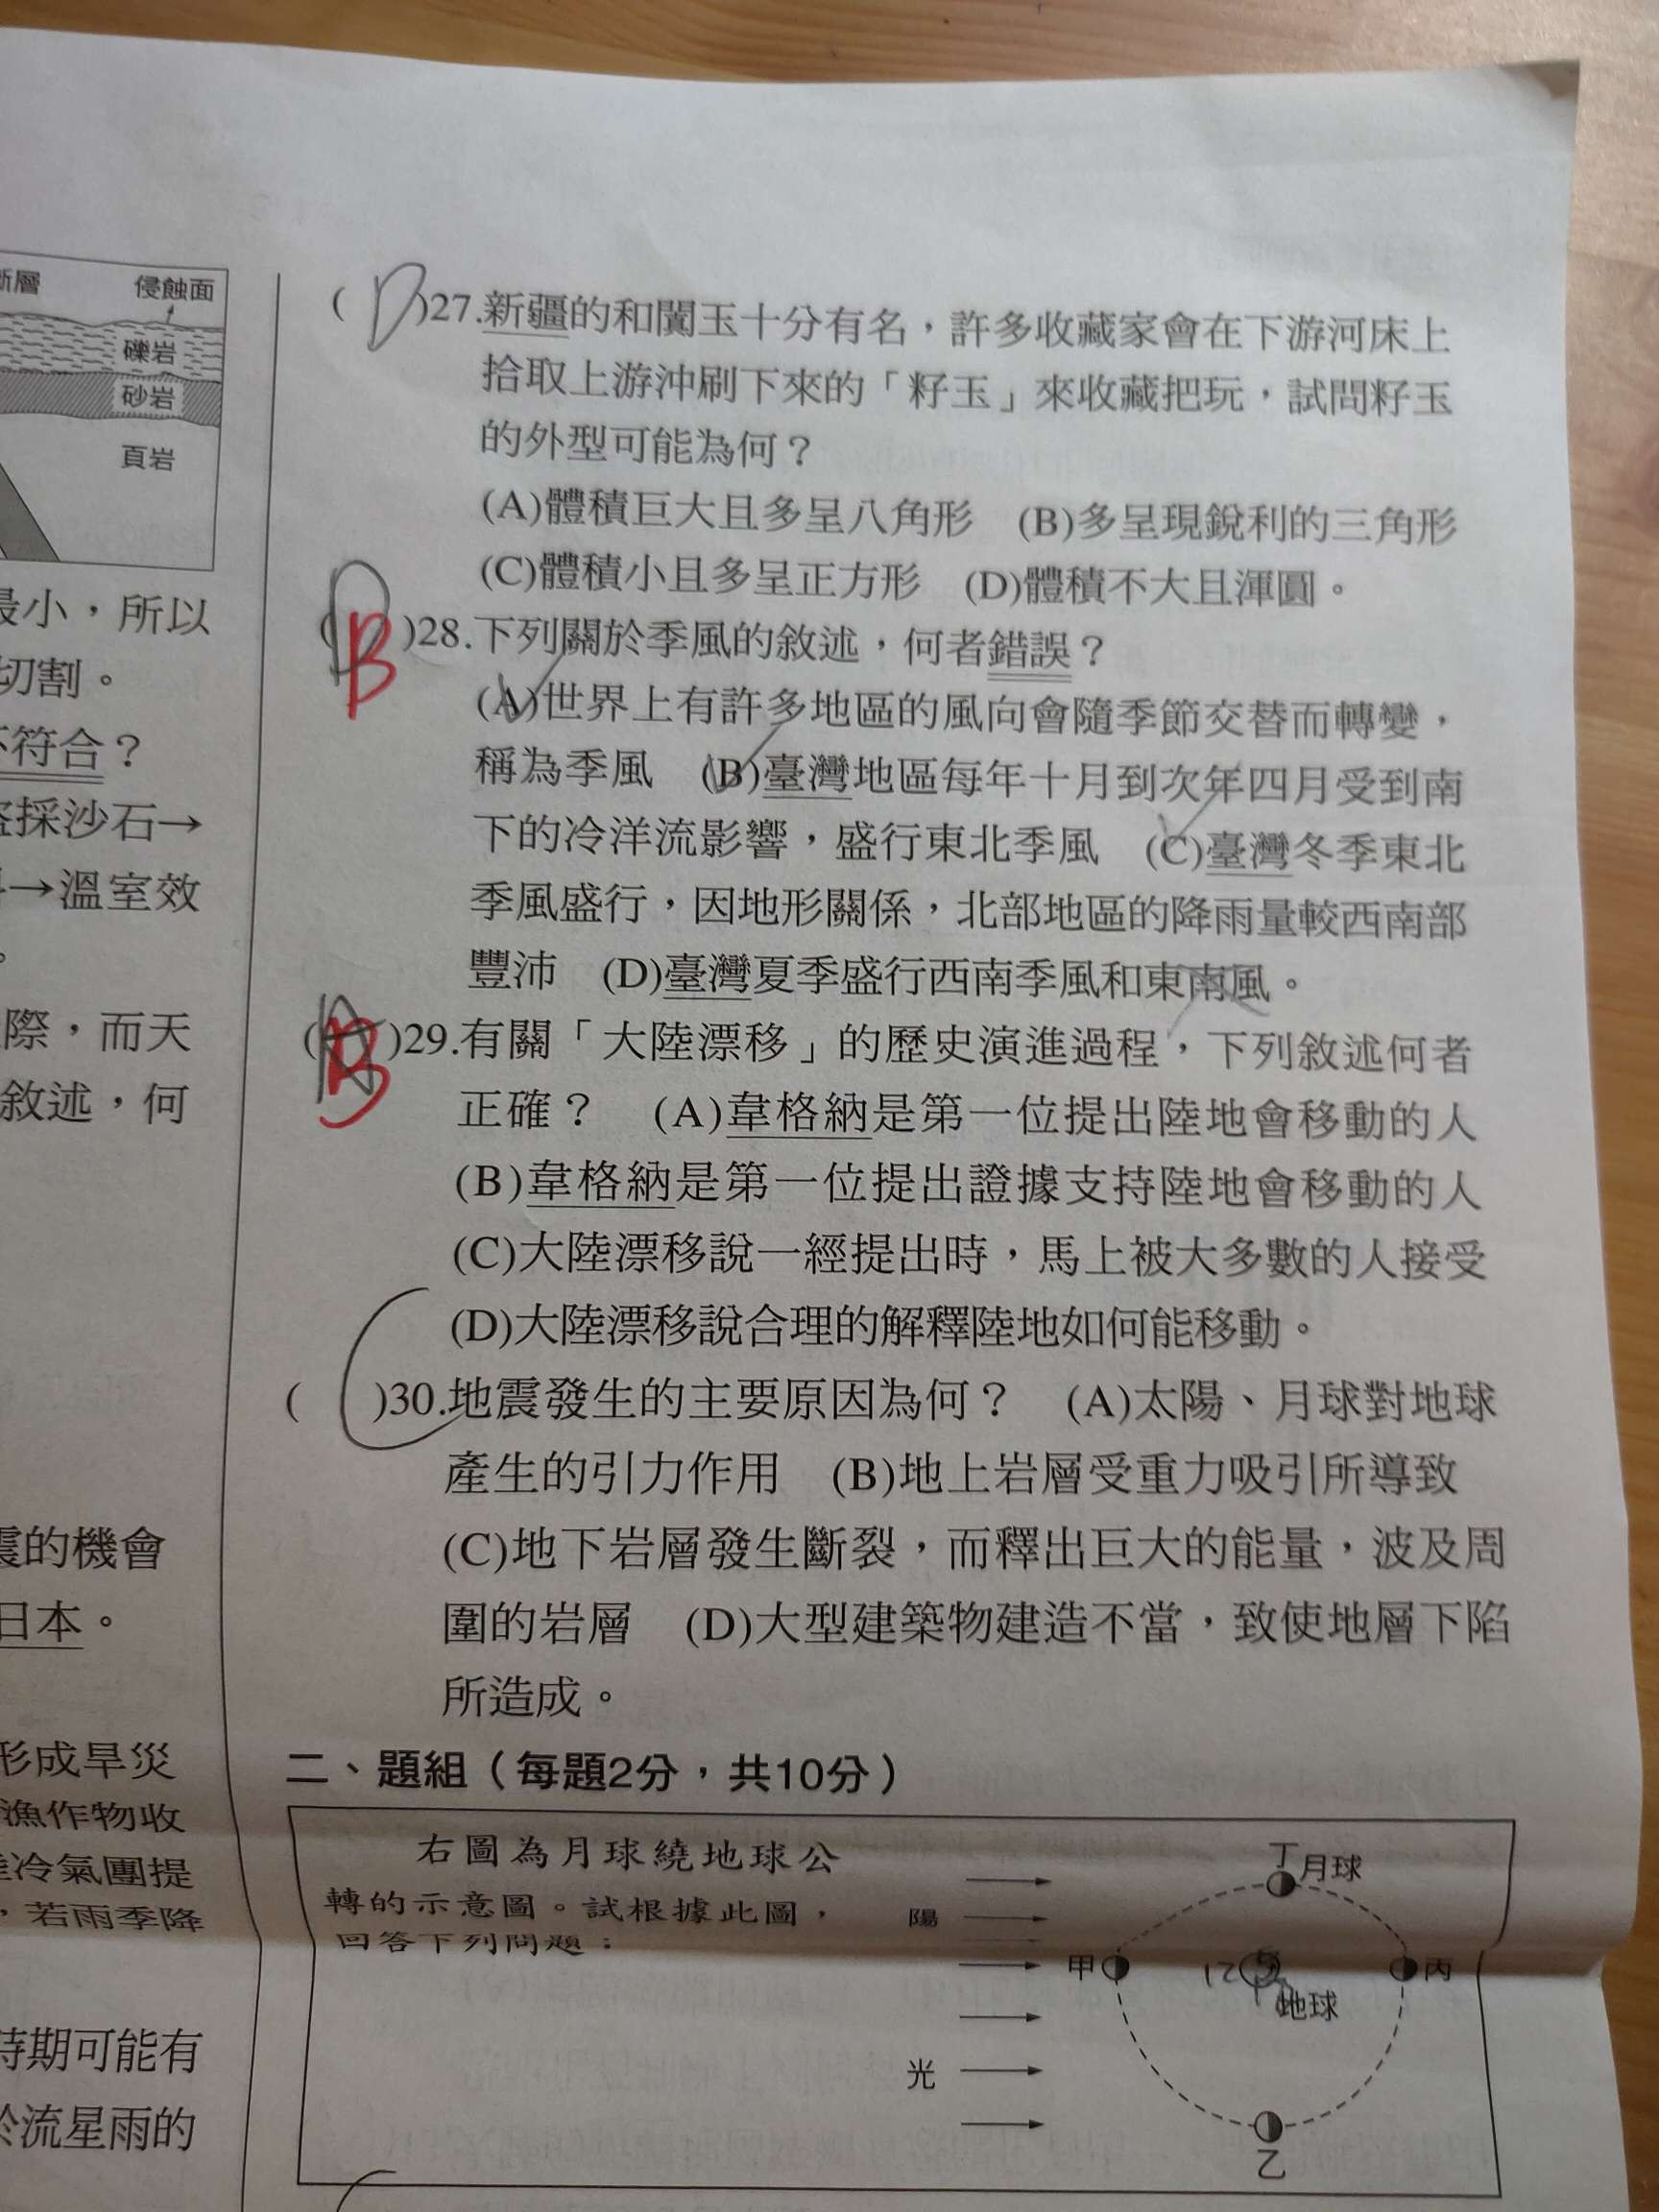 斷層 侵蝕面
礫岩
砂岩
頁岩
最小，所以
切割。
不符合？
盜採沙石→
→溫室效
。
際，而天
敘述，何
震的機會
日本。
形成旱災
漁作物收
冷氣團提
，若雨季降
時期可能有
於流星雨的
( D )27.新疆的和闐玉十分有名，許多收藏家會在下游河床上
拾取上游沖刷下來的「籽玉」來收藏把玩，試問籽玉
的外型可能為何？
(A)體積巨大且多呈八角形 (B)多呈現銳利的三角形
(C)體積小且多呈正方形 (D)體積不大且渾圓。
( D B )28.下列關於季風的敘述，何者錯誤？
(A)世界上有許多地區的風向會隨季節交替而轉變，
稱為季風 (B)臺灣地區每年十月到次年四月受到南
下的冷洋流影響，盛行東北季風 (C)臺灣冬季東北
季風盛行，因地形關係，北部地區的降雨量較西南部
豐沛 (D)臺灣夏季盛行西南季風和東南風。
( A B )29.有關「大陸漂移」的歷史演進過程，下列敘述何者
正確？ (A)韋格納是第一位提出陸地會移動的人
(B)韋格納是第一位提出證據支持陸地會移動的人
(C)大陸漂移說一經提出時，馬上被大多數的人接受
(D)大陸漂移說合理的解釋陸地如何能移動。
( C )30.地震發生的主要原因為何？ (A)太陽、月球對地球
產生的引力作用 (B)地上岩層受重力吸引所導致
(C)地下岩層發生斷裂，而釋出巨大的能量，波及周
圍的岩層 (D)大型建築物建造不當，致使地層下陷
所造成。
二、題組（每題2分，共10分）
右圖為月球繞地球公
轉的示意圖。試根據此圖，
回答下列問題：
丁 月球
陽
甲 丙
地球
光
乙